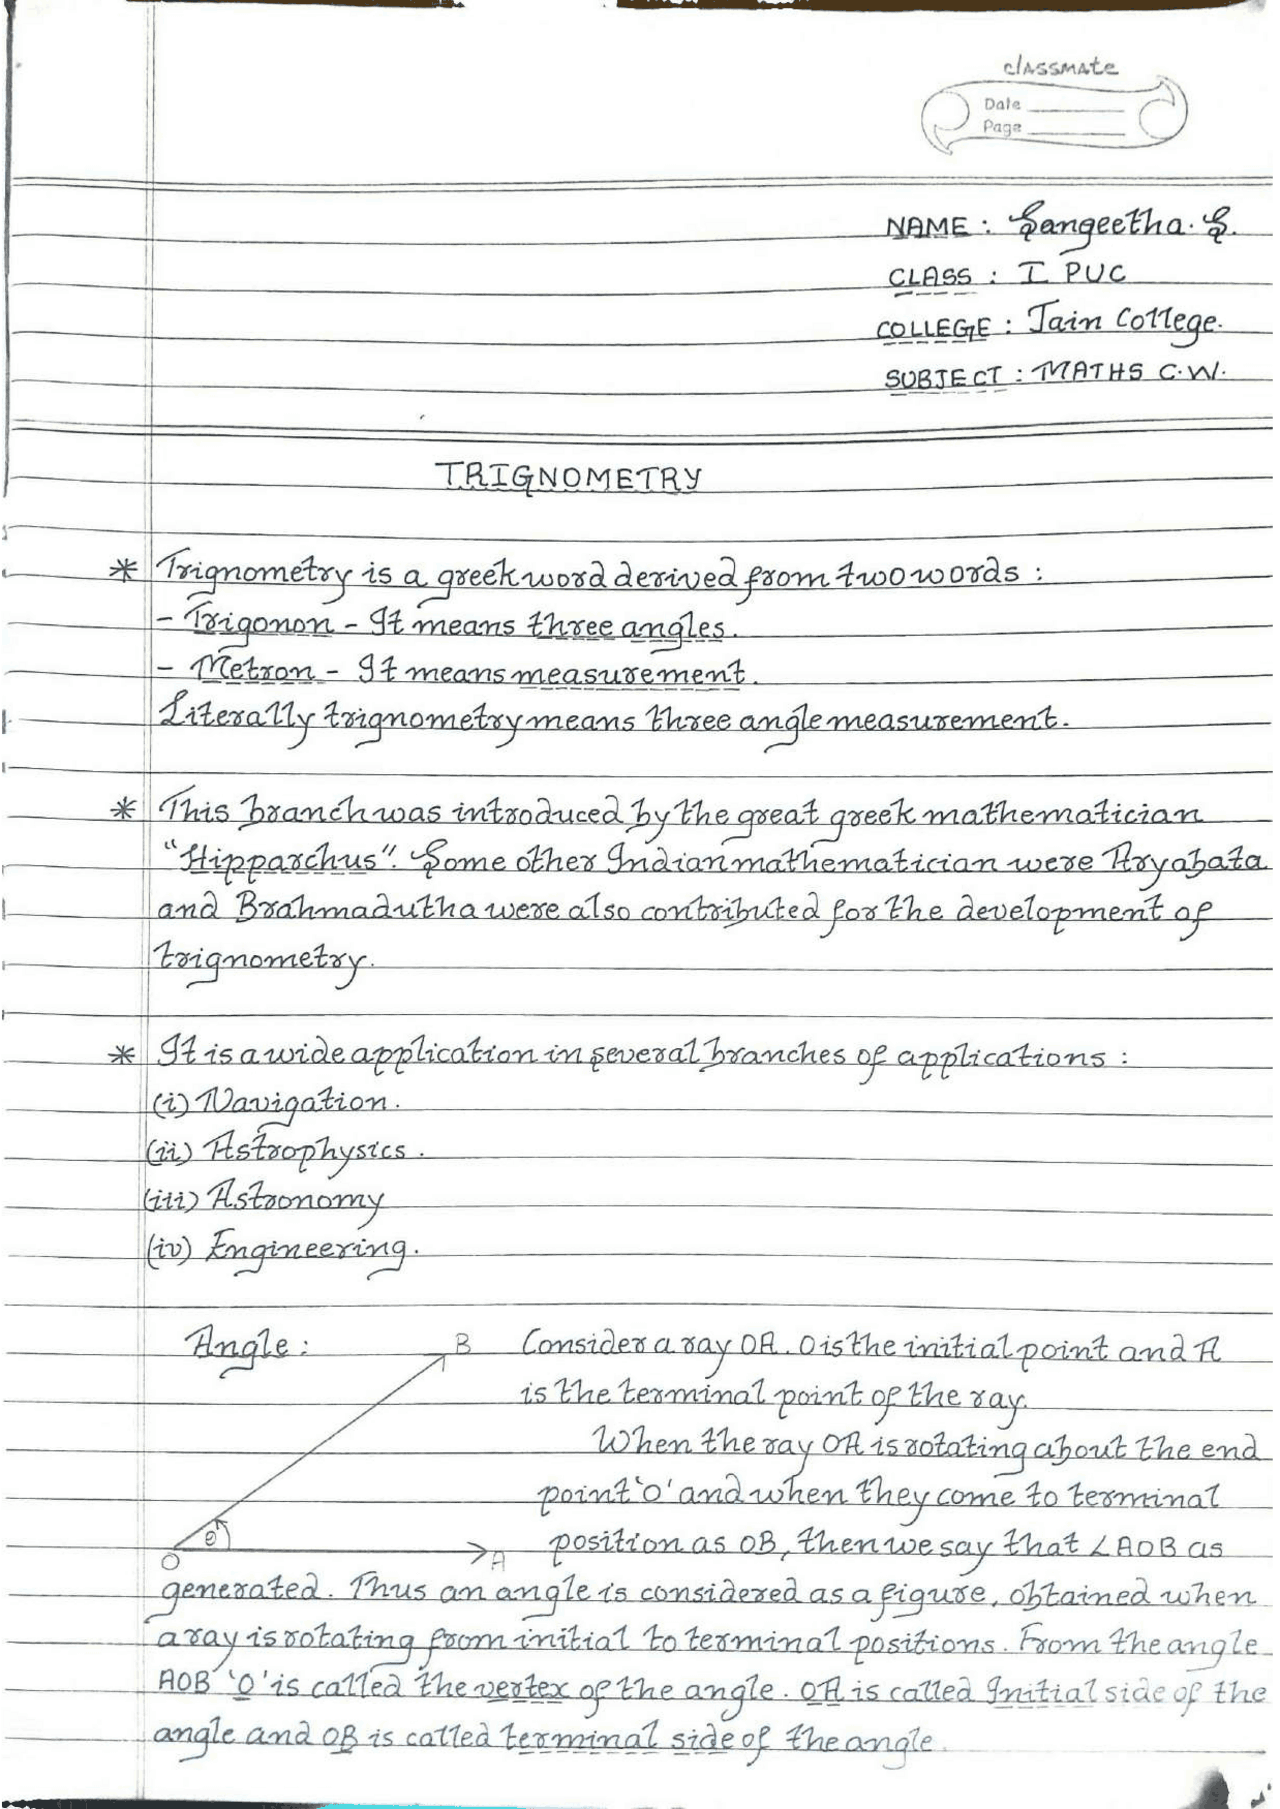 classmate
Date
Page
NAME : Sangeetha. S.
CLASS : I PUC
COLLEGE : Jain College.
SUBJECT : MATHS C.W.
TRIGNOMETRY
* Trignometry is a greek word derived from two words :
- Trigonon - It means three angles.
- Metron - It means measurement.
Literally trignometry means three angle measurement.
* This branch was introduced by the great greek mathematician
"Hipparchus". Some other Indian mathematician were Aryabata
and Brahmadutha were also contributed for the development of
trignometry.
* It is a wide application in several branches of applications :
(i) Navigation.
(ii) Astrophysics.
(iii) Astronomy
(iv) Engineering.
Angle : B Consider a ray OA. O is the initial point and A
is the terminal point of the ray.
When the ray OA is rotating about the end
point 'O' and when they come to terminal
O θ A position as OB, then we say that ∠AOB as
generated. Thus an angle is considered as a figure, obtained when
a ray is rotating from initial to terminal positions. From the angle
AOB 'O' is called the vertex of the angle. OA is called Initial side of the
angle and OB is called terminal side of the angle.